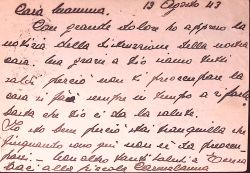 13 Agosto 43
Cara Mamma,
Con grande dolore ho appreso la
notizia della distruzione della nostra
casa. Ma grazie a Dio siamo tutti
salvi perciò non ti preoccupare la
casa si farà sempre in tempo a ripararla
basta che Dio ci da la salute.
Io sto bene perciò stai tranquilla che
fin quando sono qui non vi da preoccu-
parsi - 
Baci alla piccola